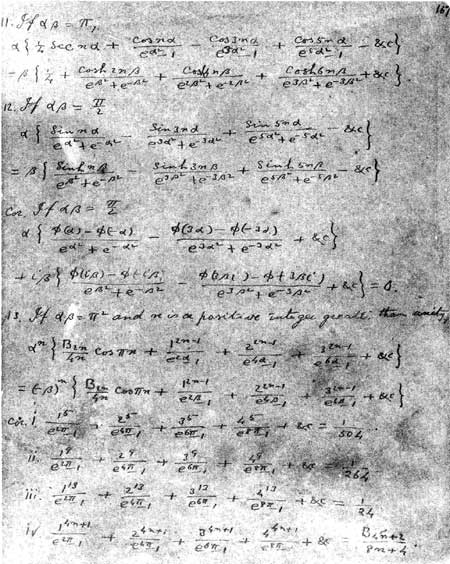 167
11. If αβ = π,
α{¼ Sec nα + Cos nα/(e^{α²}-1) - Cos 3nα/(e^{3α²}-1) + Cos 5nα/(e^{5α²}-1) - &c}
= β{¼ + Cosh 2nβ/(e^{β²}+e^{-β²}) + Cosh 4nβ/(e^{2β²}+e^{-2β²}) + Cosh 6nβ/(e^{3β²}+e^{-3β²}) + &c}.
12. If αβ = π/2
α{Sin nα/(e^{α²}+e^{-α²}) - Sin 3nα/(e^{3α²}+e^{-3α²}) + Sin 5nα/(e^{5α²}+e^{-5α²}) - &c}
= β{Sinh nβ/(e^{β²}+e^{-β²}) - Sinh 3nβ/(e^{3β²}+e^{-3β²}) + Sinh 5nβ/(e^{5β²}+e^{-5β²}) - &c}
Cor. If αβ = π/2
α{(φ(α) - φ(-α))/(e^{α²}+e^{-α²}) - (φ(3α) - φ(-3α))/(e^{3α²}+e^{-3α²}) + &c}
+ iβ{(φ(iβ) - φ(-iβ))/(e^{β²}+e^{-β²}) - (φ(3βi) - φ(-3βi))/(e^{3β²}+e^{-3β²}) + &c} = 0.
13. If αβ = π² and n is a positive integer greater than unity,
αⁿ{B_{2n}/4n Cos πn + 1^{2n-1}/(e^{2α}-1) + 2^{2n-1}/(e^{4α}-1) + 3^{2n-1}/(e^{6α}-1) + &c}
= (-β)ⁿ{B_{2n}/4n Cos πn + 1^{2n-1}/(e^{2β}-1) + 2^{2n-1}/(e^{4β}-1) + 3^{2n-1}/(e^{6β}-1) + &c}
Cor. i 1⁵/(e^{2π}-1) + 2⁵/(e^{4π}-1) + 3⁵/(e^{6π}-1) + 4⁵/(e^{8π}-1) + &c = 1/504
ii. 1⁹/(e^{2π}-1) + 2⁹/(e^{4π}-1) + 3⁹/(e^{6π}-1) + 4⁹/(e^{8π}-1) + &c = 1/264
iii. 1¹³/(e^{2π}-1) + 2¹³/(e^{4π}-1) + 3¹³/(e^{6π}-1) + 4¹³/(e^{8π}-1) + &c = 1/24
iv 1^{4n+1}/(e^{2π}-1) + 2^{4n+1}/(e^{4π}-1) + 3^{4n+1}/(e^{6π}-1) + 4^{4n+1}/(e^{8π}-1) + &c = B_{4n+2}/(8n+4).